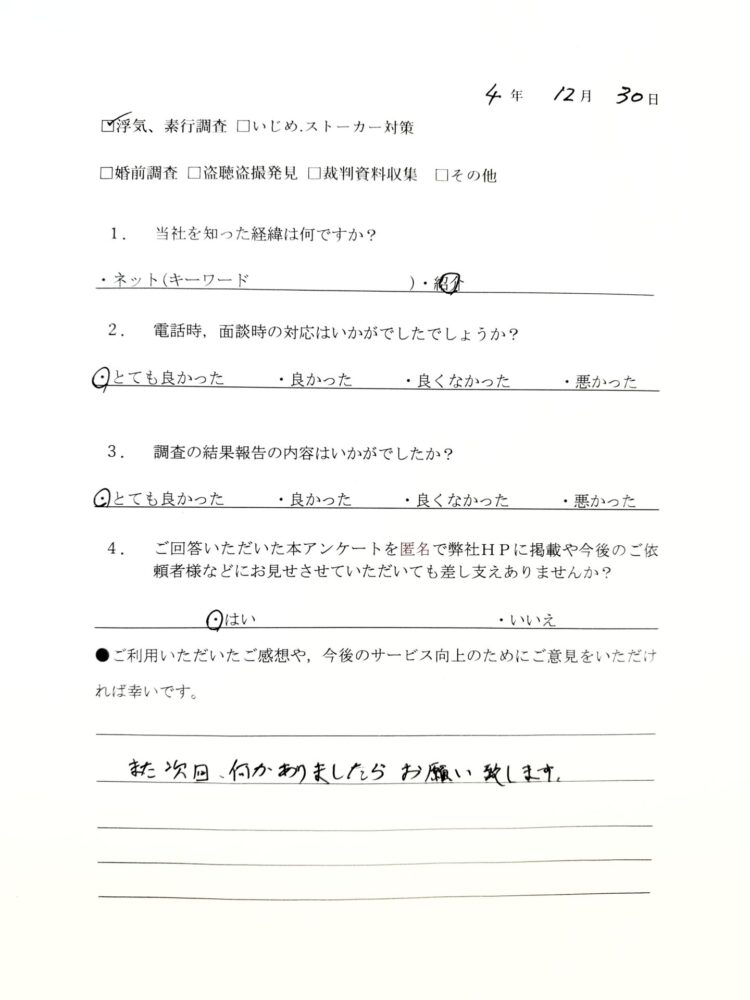 4年 12月 30日
☑浮気、素行調査 □いじめ.ストーカー対策
□婚前調査 □盗聴盗撮発見 □裁判資料収集 □その他
1. 当社を知った経緯は何ですか?
・ネット(キーワード )・紹介
2. 電話時,面談時の対応はいかがでしたでしょうか?
・とても良かった ・良かった ・良くなかった ・悪かった
3. 調査の結果報告の内容はいかがでしたか?
・とても良かった ・良かった ・良くなかった ・悪かった
4. ご回答いただいた本アンケートを匿名で弊社HPに掲載や今後のご依
頼者様などにお見せさせていただいても差し支えありませんか?
・はい ・いいえ
●ご利用いただいたご感想や,今後のサービス向上のためにご意見をいただけ
れば幸いです。
また次回、何かありましたらお願い致します。